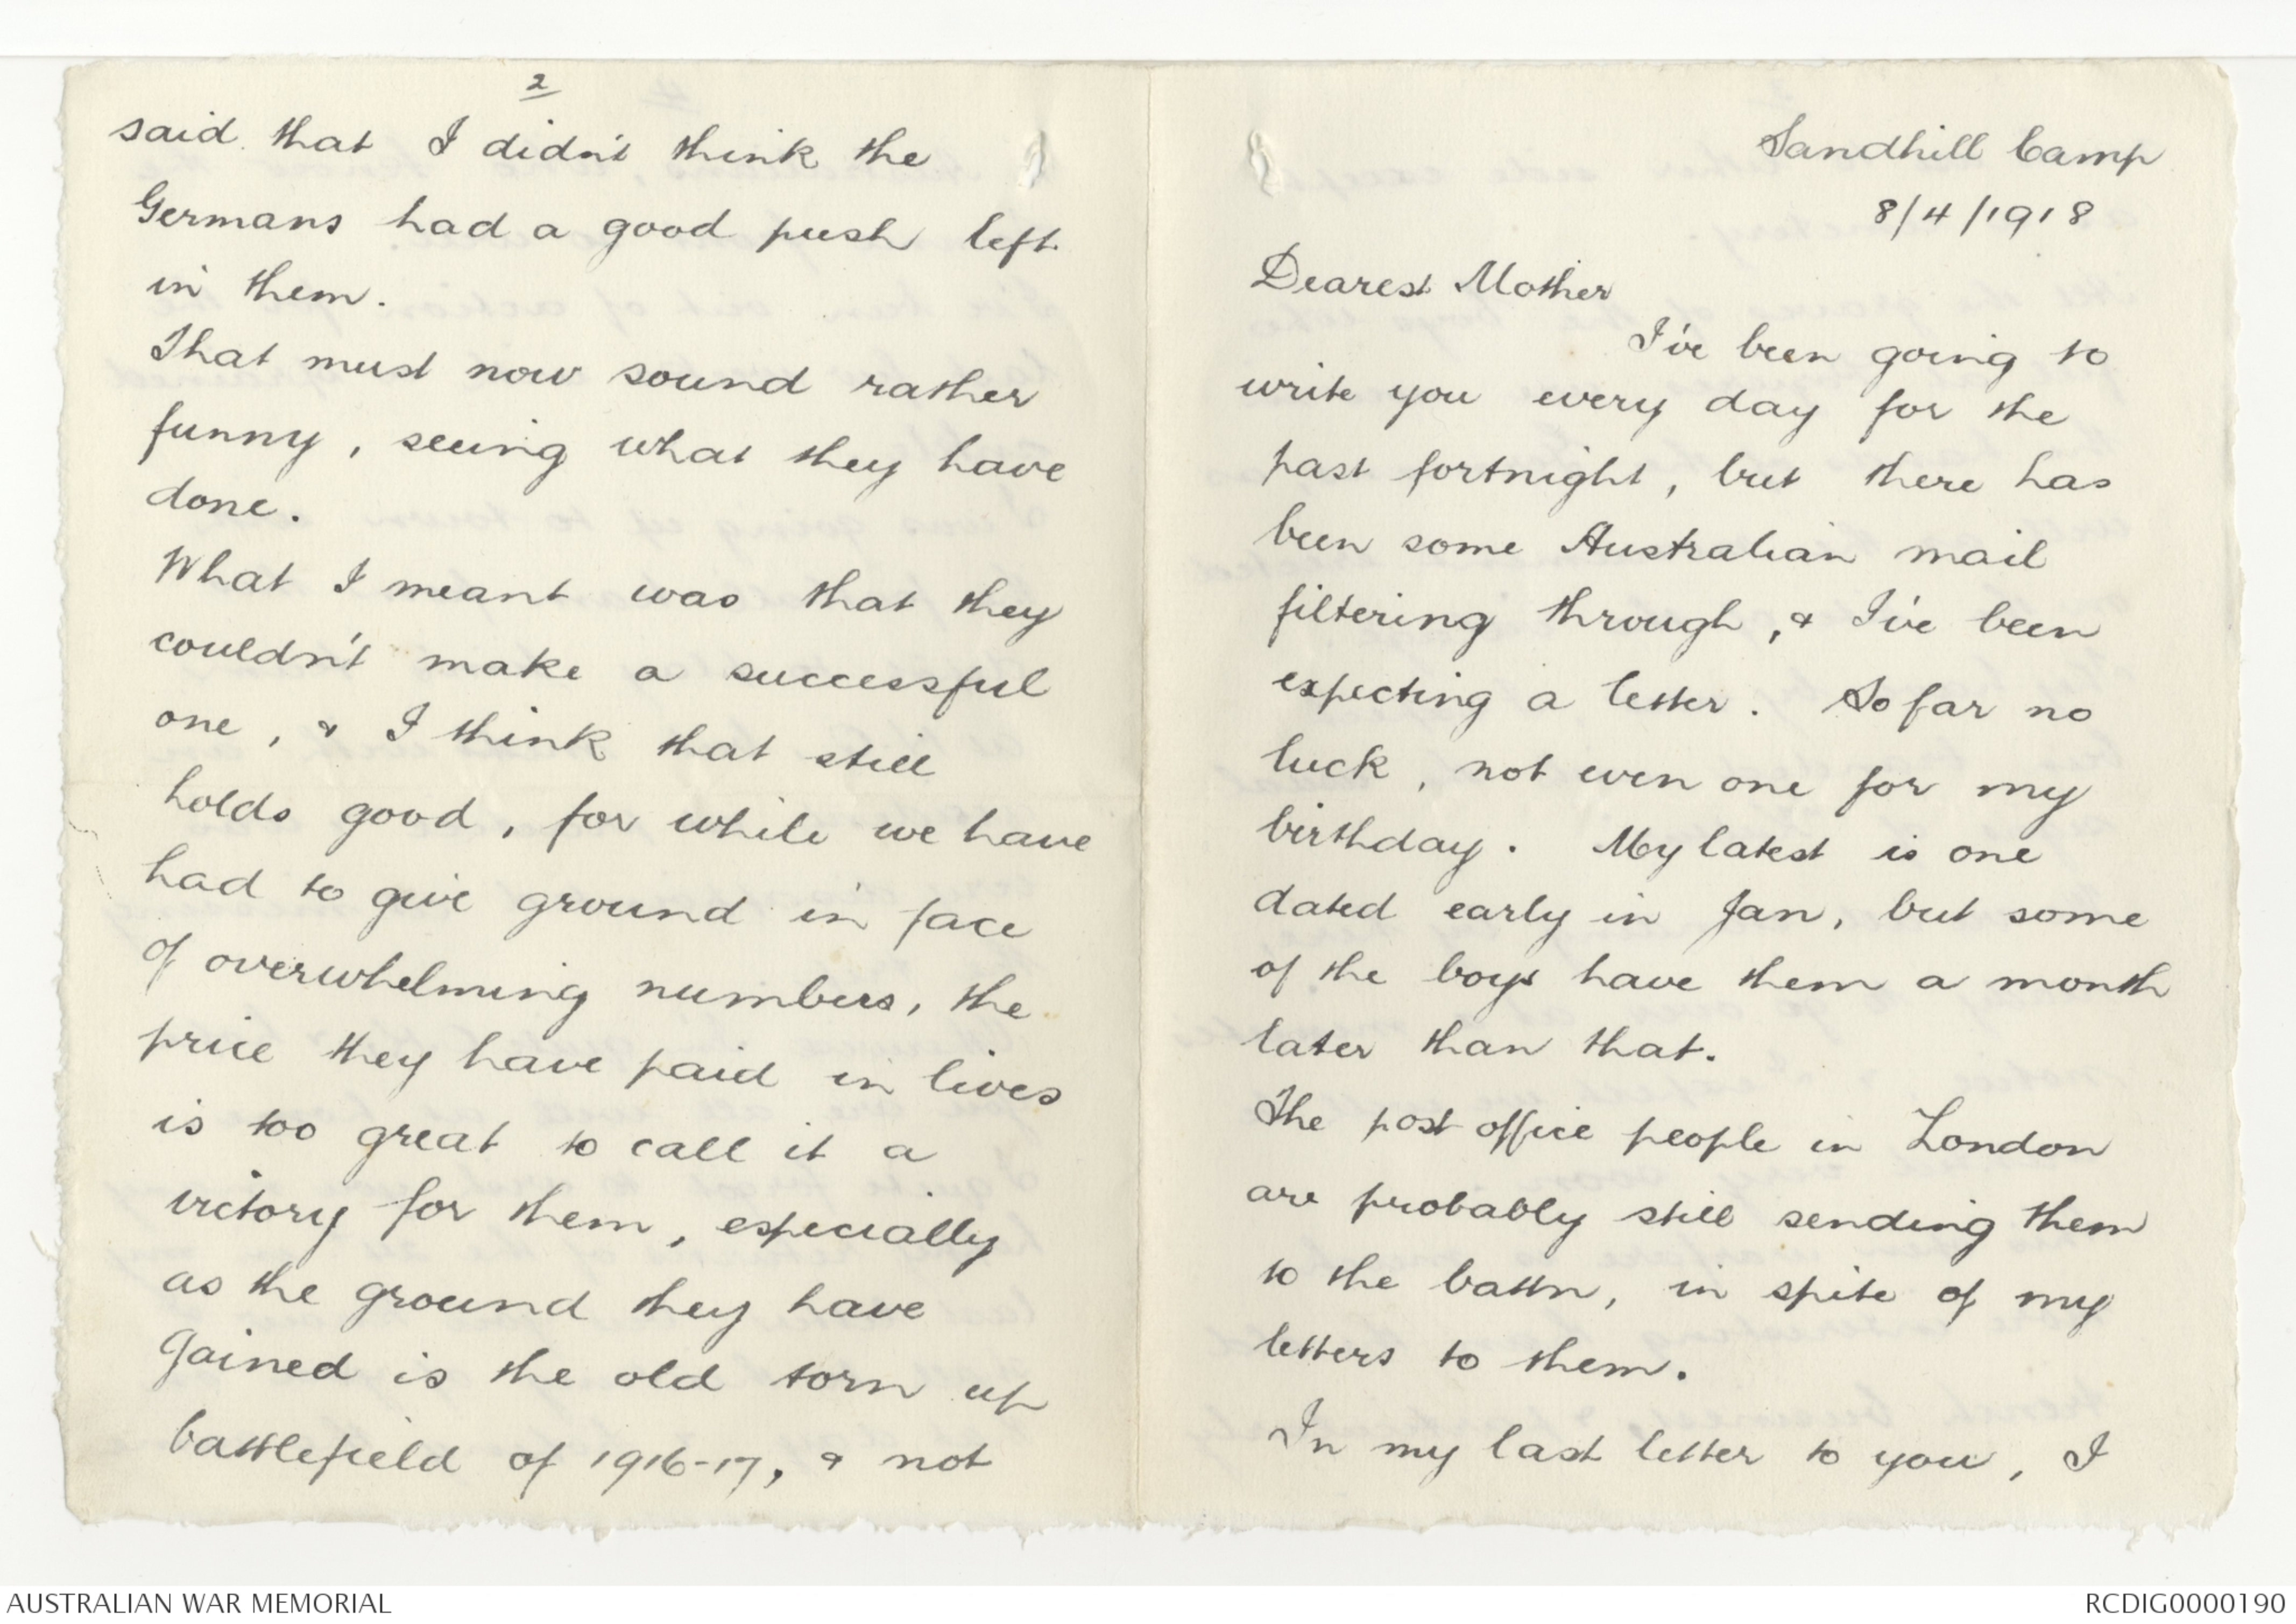 Sandhill Camp
8/4/1918
Dearest Mother
I've been going to
write you every day for the
past fortnight, but there has
been some Australian mail
filtering through, & I've been
expecting a letter. So far no
luck, not even one for my
birthday. My latest is one
dated early in Jan, but some
of the boys have them a month
later than that.
The post office people in London
are probably still sending them
to the battn, in spite of my
letters to them.
In my last letter to you, I
2
said that I didn't think the
Germans had a good push left
in them.
That must now sound rather
funny, seeing what they have
done.
What I meant was that they
couldn't make a successful
one, & I think that still
holds good, for while we have
had to give ground in face
of overwhelming numbers, the
price they have paid in lives
is too great to call it a
victory for them, especially
as the ground they have
gained is the old torn up
battlefield of 1916-17, & not
AUSTRALIAN WAR MEMORIAL
RCDIG0000190